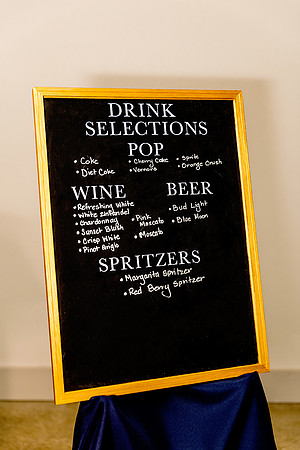 DRINK
SELECTIONS
POP
• Coke
• Diet Coke
• Cherry Coke
• Vernors
• Sprite
• Orange Crush
WINE
• Refreshing White
• White Zinfandel
• Chardonnay
• Sunset Blush
• Crisp White
• Pinot Grigio
• Pink
Moscato
• Moscato
BEER
• Bud Light
• Blue Moon
SPRITZERS
• Margarita Spritzer
• Red Berry Spritzer